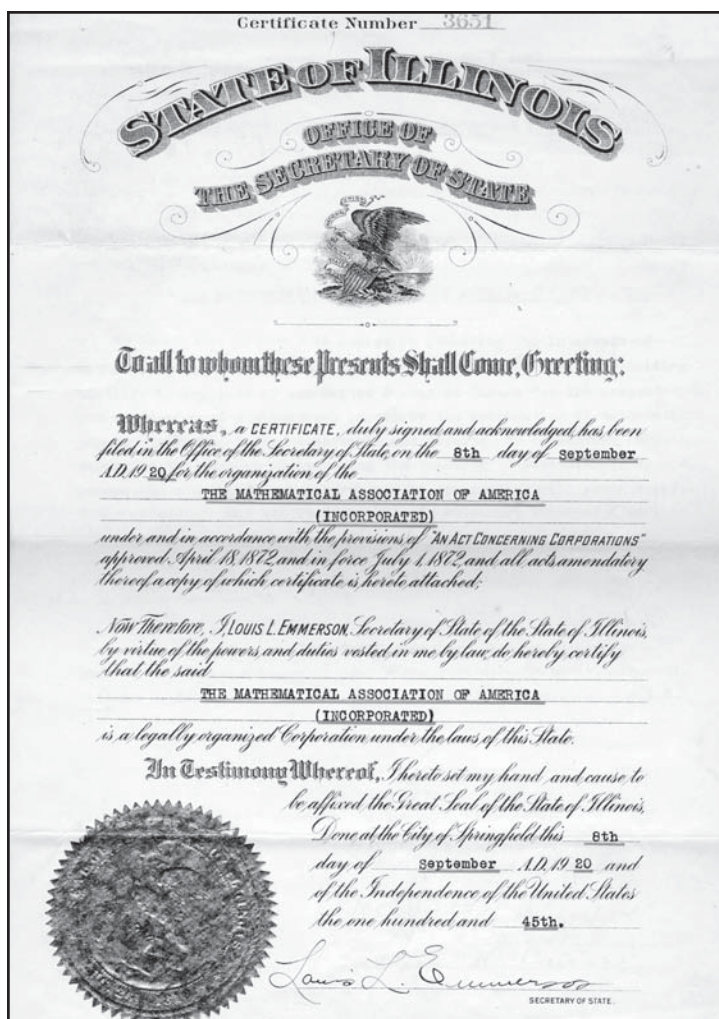 Certificate Number 3651
STATE OF ILLINOIS
OFFICE OF
THE SECRETARY OF STATE
To all to whom these Presents Shall Come, Greeting:
Whereas, a CERTIFICATE, duly signed and acknowledged, has been
filed in the Office of the Secretary of State, on the 8th day of September
A.D. 1920 for the organization of the
THE MATHEMATICAL ASSOCIATION OF AMERICA
(INCORPORATED)
under and in accordance with the provisions of "AN ACT CONCERNING CORPORATIONS"
approved April 18, 1872, and in force July 1, 1872, and all acts amendatory
thereof, a copy of which certificate is hereto attached;
Now Therefore, I, LOUIS L. EMMERSON, Secretary of State of the State of Illinois,
by virtue of the powers and duties vested in me by law, do hereby certify
that the said
THE MATHEMATICAL ASSOCIATION OF AMERICA
(INCORPORATED)
is a legally organized Corporation under the laws of this State.
In Testimony Whereof, I hereto set my hand and cause to
be affixed the Great Seal of the State of Illinois,
Done at the City of Springfield this 8th
day of September A.D. 1920 and
of the Independence of the United States
the one hundred and 45th.
Louis L. Emmerson
SECRETARY OF STATE.